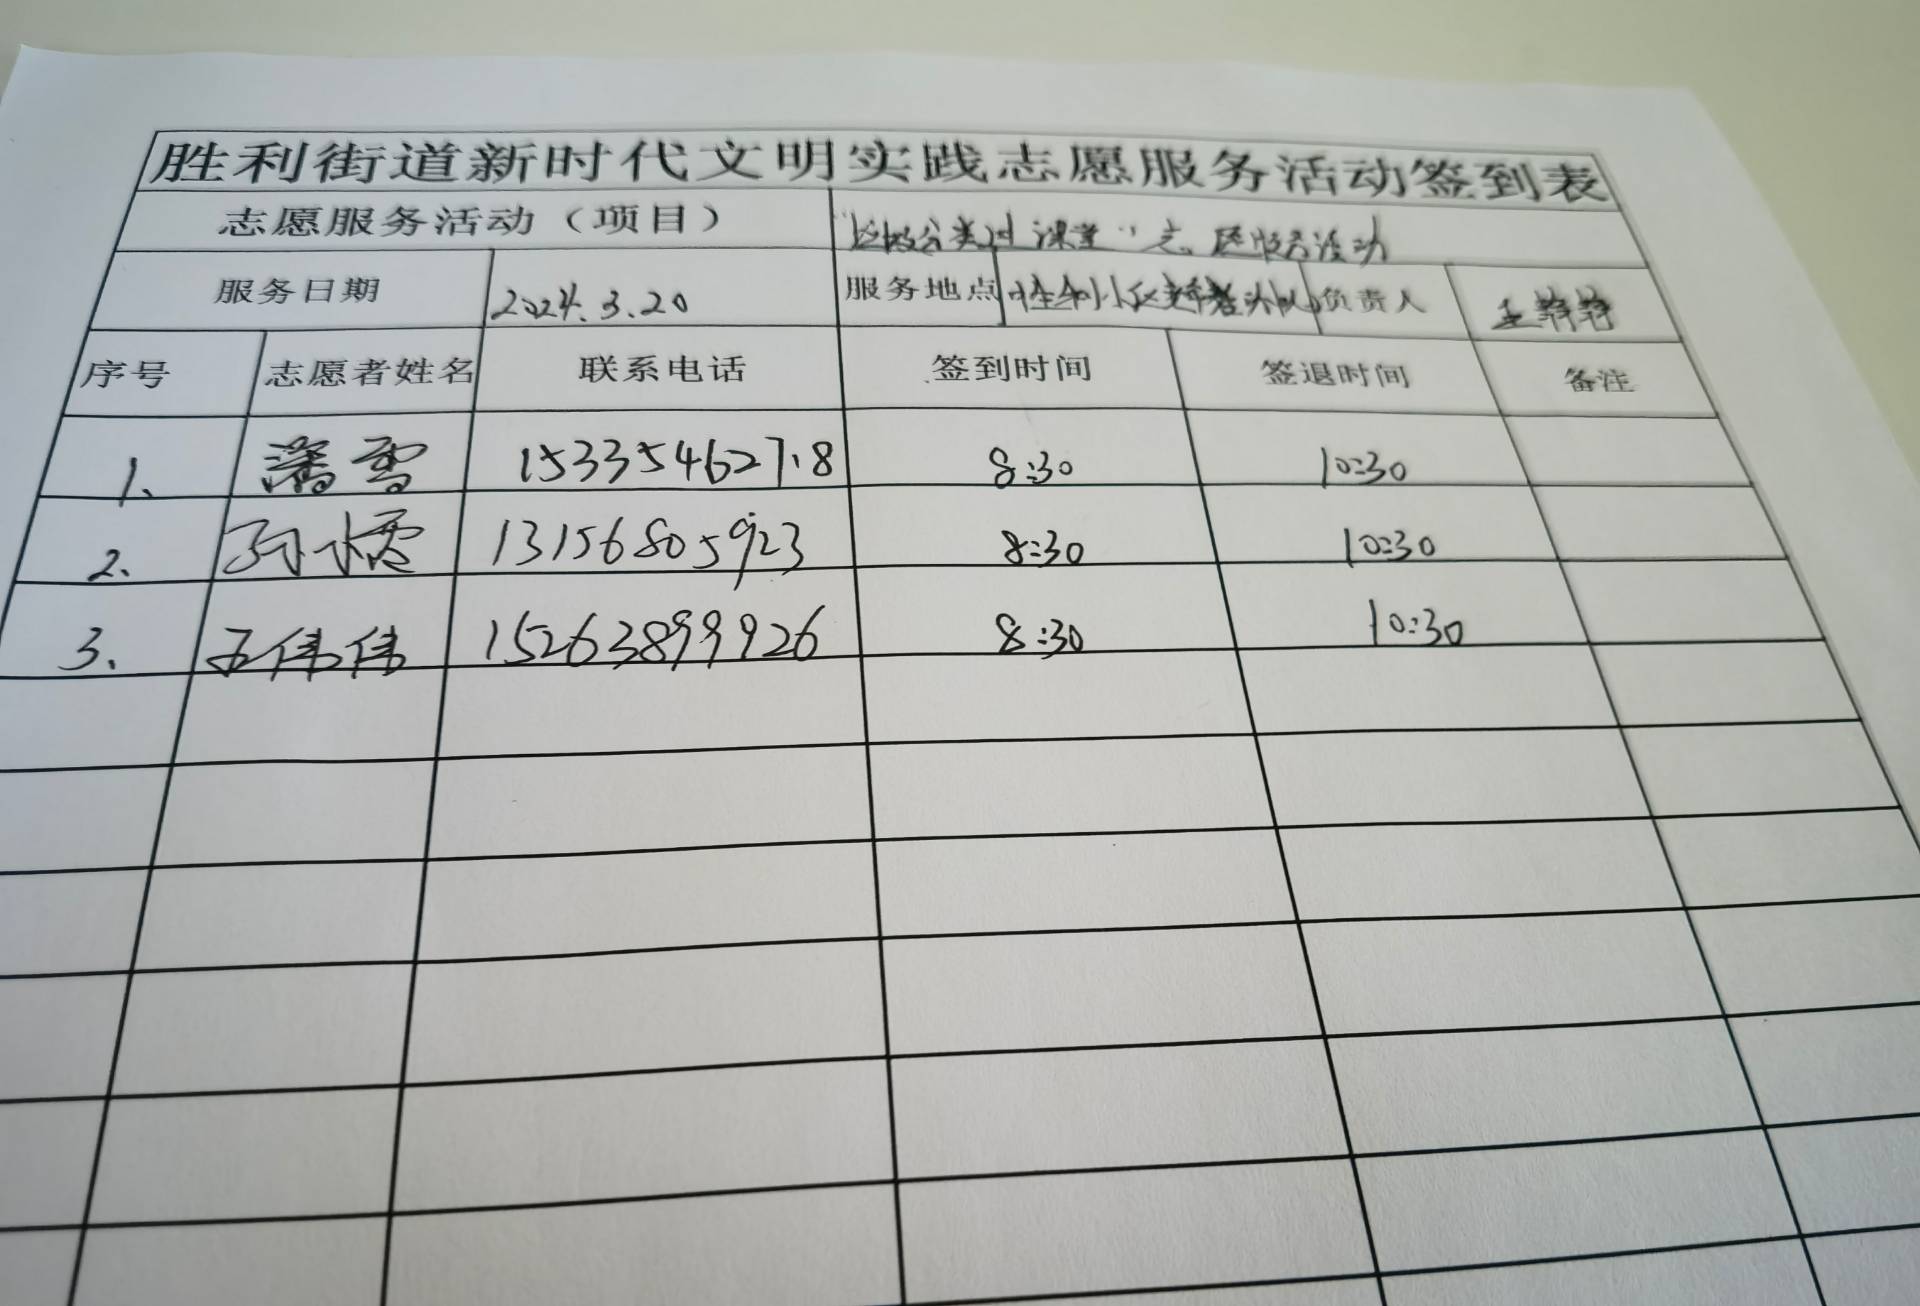 胜利街道新时代文明实践志愿服务活动签到表
志愿服务活动（项目） 垃圾分类 课堂"志愿服务活动
服务日期 2024.3.20 服务地点 胜利小区 负责人 王
序号 志愿者姓名 联系电话 签到时间 签退时间 备注
1. 潘雪 15335462718 8:30 10:30
2. 孙 13156805923 8:30 10:30
3. 王伟伟 15263899926 8:30 10:30